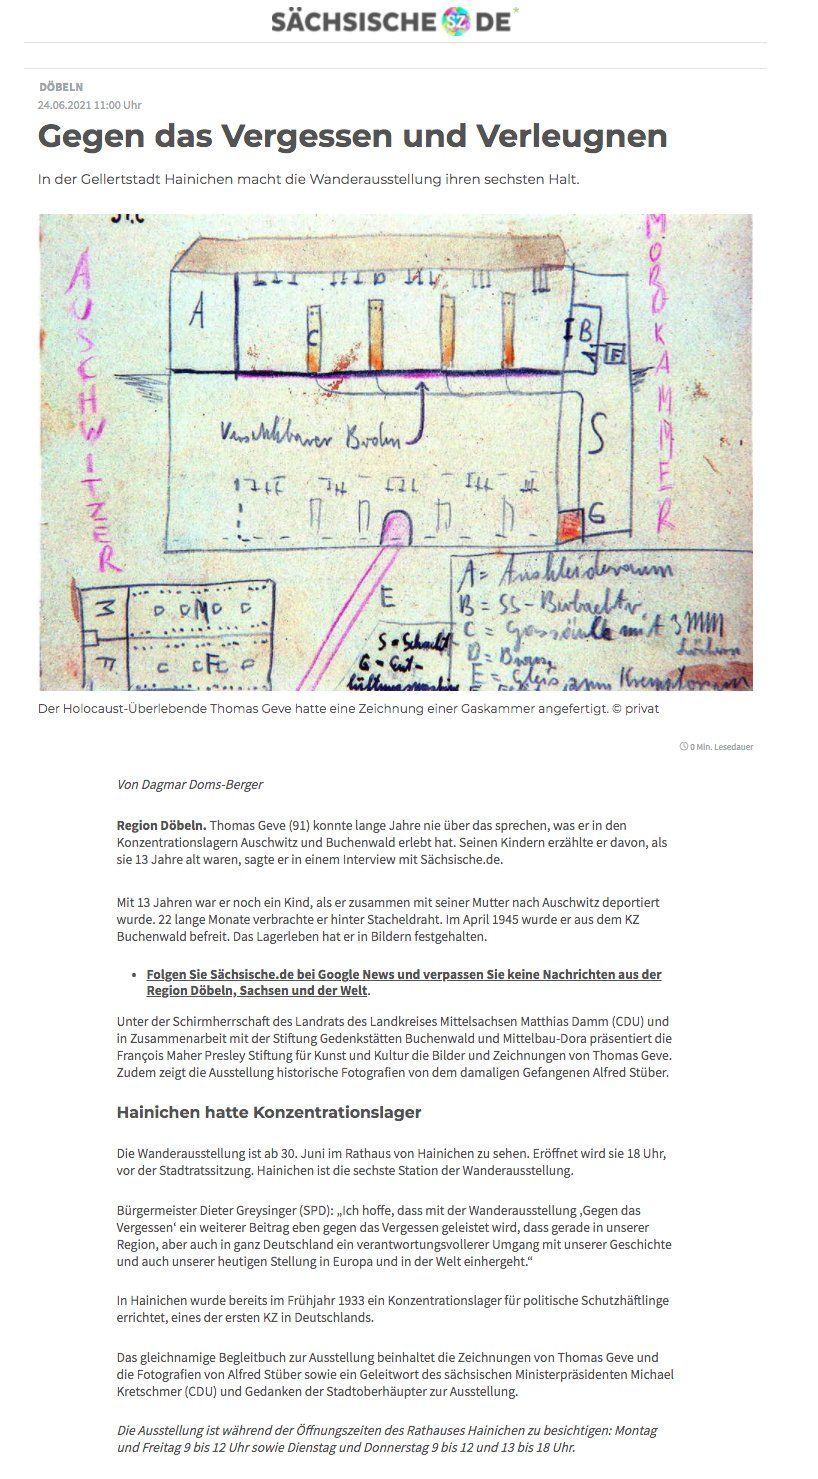 SÄCHSISCHE SZ DE*
DÖBELN
24.06.2021 11:00 Uhr
Gegen das Vergessen und Verleugnen
In der Gellertstadt Hainichen macht die Wanderausstellung ihren sechsten Halt.
AUSCHWITZER
MORDKAMMER
A
C
D
B
F
S
G
E
A = Auskleideraum
B = SS-
C = mit 3MM
D =
E = Gleis zum
S = Schacht
G =
M
F
Der Holocaust-Überlebende Thomas Geve hatte eine Zeichnung einer Gaskammer angefertigt. © privat
0 Min. Lesedauer
Von Dagmar Doms-Berger
Region Döbeln. Thomas Geve (91) konnte lange Jahre nie über das sprechen, was er in den
Konzentrationslagern Auschwitz und Buchenwald erlebt hat. Seinen Kindern erzählte er davon, als
sie 13 Jahre alt waren, sagte er in einem Interview mit Sächsische.de.
Mit 13 Jahren war er noch ein Kind, als er zusammen mit seiner Mutter nach Auschwitz deportiert
wurde. 22 lange Monate verbrachte er hinter Stacheldraht. Im April 1945 wurde er aus dem KZ
Buchenwald befreit. Das Lagerleben hat er in Bildern festgehalten.
• Folgen Sie Sächsische.de bei Google News und verpassen Sie keine Nachrichten aus der
Region Döbeln, Sachsen und der Welt.
Unter der Schirmherrschaft des Landrats des Landkreises Mittelsachsen Matthias Damm (CDU) und
in Zusammenarbeit mit der Stiftung Gedenkstätten Buchenwald und Mittelbau-Dora präsentiert die
François Maher Presley Stiftung für Kunst und Kultur die Bilder und Zeichnungen von Thomas Geve.
Zudem zeigt die Ausstellung historische Fotografien von dem damaligen Gefangenen Alfred Stüber.
Hainichen hatte Konzentrationslager
Die Wanderausstellung ist ab 30. Juni im Rathaus von Hainichen zu sehen. Eröffnet wird sie 18 Uhr,
vor der Stadtratssitzung. Hainichen ist die sechste Station der Wanderausstellung.
Bürgermeister Dieter Greysinger (SPD): „Ich hoffe, dass mit der Wanderausstellung ‚Gegen das
Vergessen‘ ein weiterer Beitrag eben gegen das Vergessen geleistet wird, dass gerade in unserer
Region, aber auch in ganz Deutschland ein verantwortungsvollerer Umgang mit unserer Geschichte
und auch unserer heutigen Stellung in Europa und in der Welt einhergeht.“
In Hainichen wurde bereits im Frühjahr 1933 ein Konzentrationslager für politische Schutzhäftlinge
errichtet, eines der ersten KZ in Deutschlands.
Das gleichnamige Begleitbuch zur Ausstellung beinhaltet die Zeichnungen von Thomas Geve und
die Fotografien von Alfred Stüber sowie ein Geleitwort des sächsischen Ministerpräsidenten Michael
Kretschmer (CDU) und Gedanken der Stadtoberhäupter zur Ausstellung.
Die Ausstellung ist während der Öffnungszeiten des Rathauses Hainichen zu besichtigen: Montag
und Freitag 9 bis 12 Uhr sowie Dienstag und Donnerstag 9 bis 12 und 13 bis 18 Uhr.